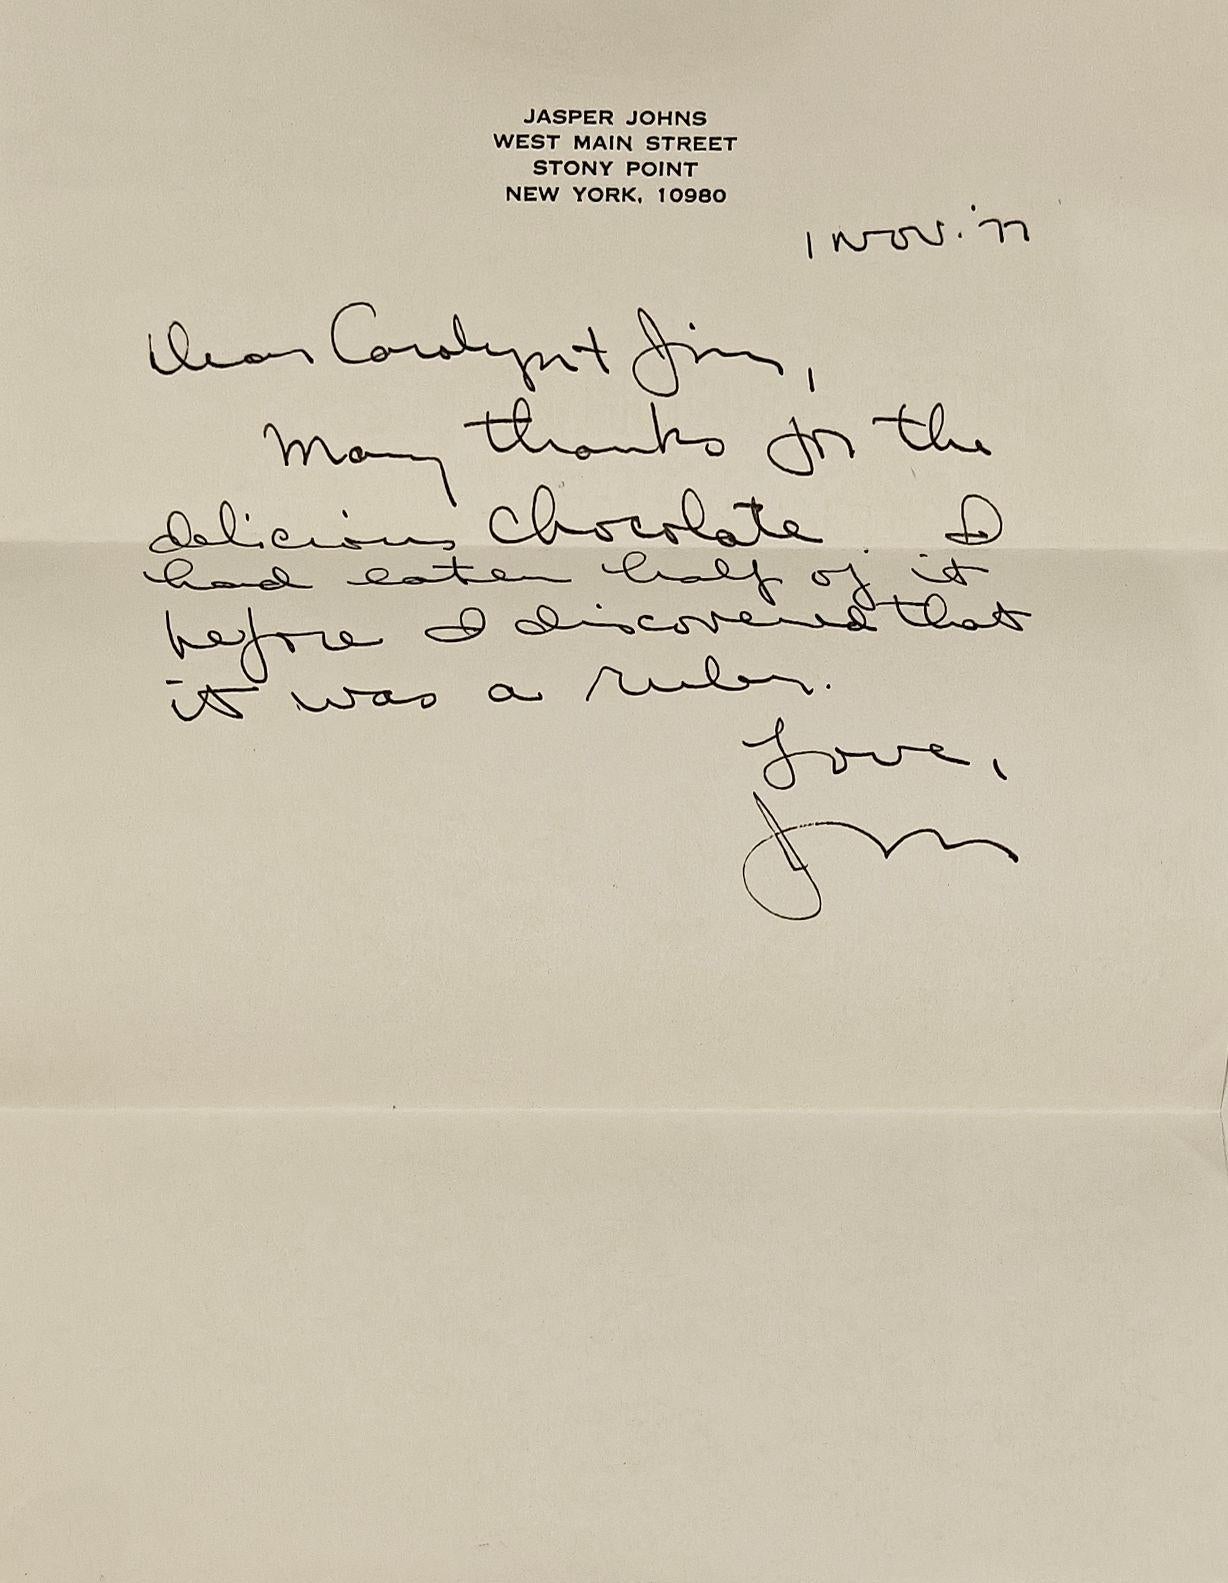 JASPER JOHNS
WEST MAIN STREET
STONY POINT
NEW YORK, 10980
1 Nov. '77
Dear Carolyn + Jim,
Many thanks for the
delicious chocolate. I
had eaten half of it
before I discovered that
it was a ruler.
Love,